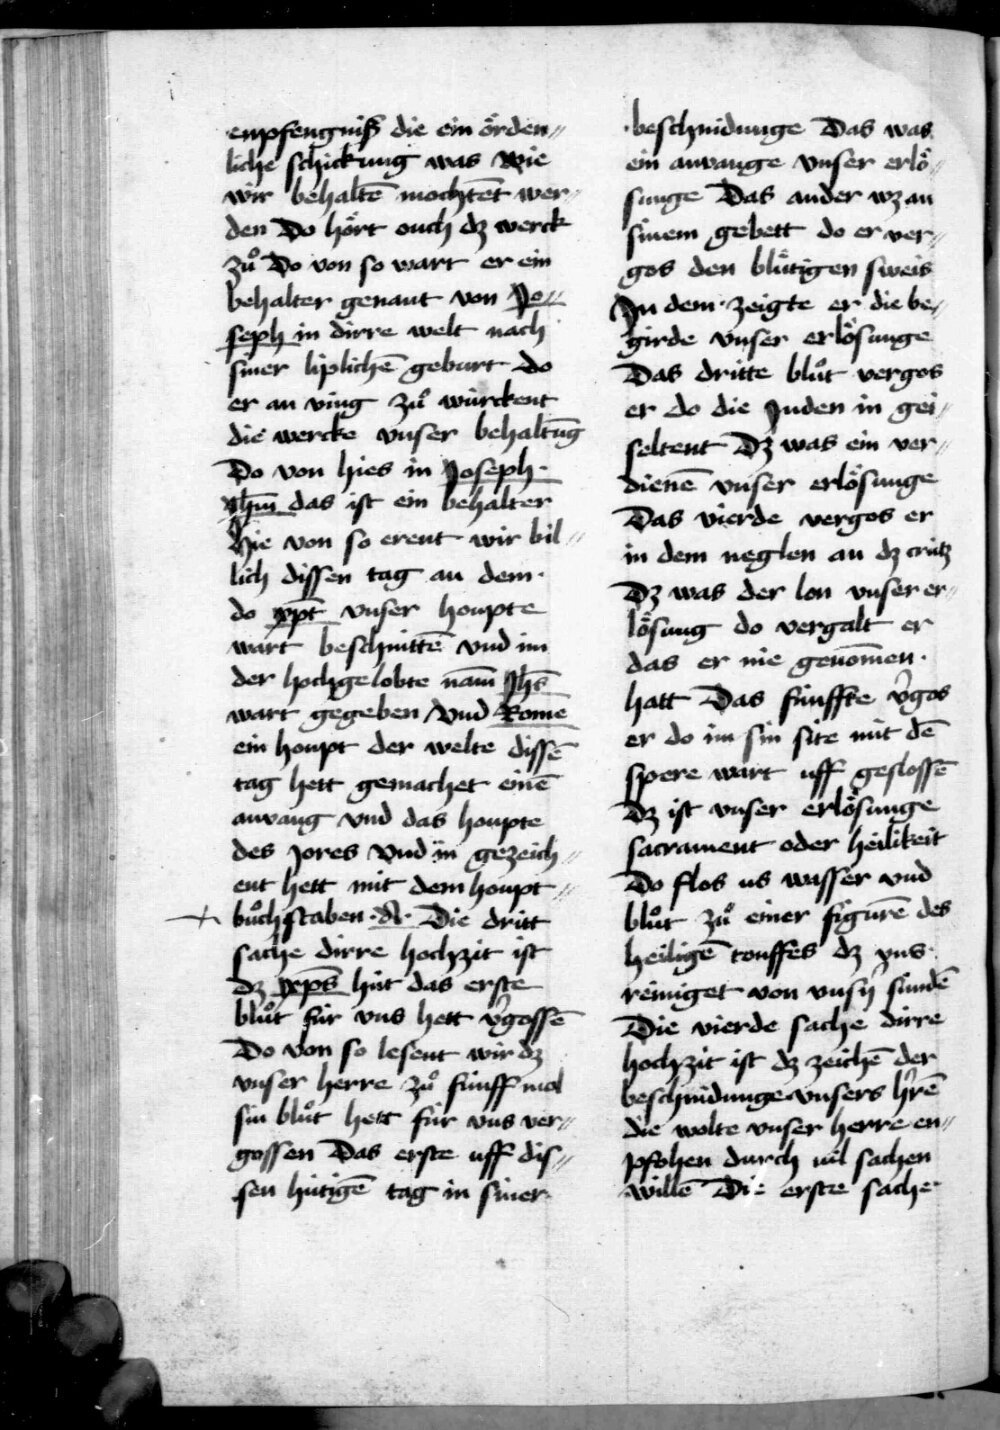 enpfengniß die ein örden„
liche schickung was wie
wir behaltē mochtēt wer„
den Do hört ouch dz werck
zuͦ Do von so wart er ein
behalter genant von Jo„
seph in dirre welt nach
siner liplichē geburt do
er an ving zuͦ würckent
die wercke vnser behaltūg
Do von hies in Joseph·
Jhm̄ das ist ein behalter
Hie von so erent wir bil„
lich dissen tag an dem·
do xp̄t vnser houpte
wart beschnittē vnd im
der hochgelobte nam̄ Jhs̄
wart gegeben vnd Rome
ein houpt der welte dissē
tag hett gemachet einē
anvang vnd das houpte
des Jores vnd in gezeich„
ent hett mit dem houpt„
buͦchstaben ·A· Die dritt
sache dirre hochzit ist
dz xp̄s hüt das erste
bluͦt für vns hett v̓gossē
Do von so lesent wir dz
vnser herre zuͦ fünff mol
sin bluͦt hett für vns ver„
gossen Das erste uff dis„
sen hütigē tag in siner·
beschnidunge Das was
ein anvange vnser erlö„
sunge Das ander wz an
sinem gebett do er ver„
gos den blütigen sweis
In dem zeigte er die be„
girde vnser erlösunge
Das dritte bluͦt vergos
er do die Juden in gei„
seltent Dz was ein ver„
dienē vnser erlösunge
Das vierde vergos er
in dem neglen an dz crütz
Dz was der lon vnser er„
lösung do vergalt er
das er nie genom̄en·
hatt Das fünffte v̓gos
er do im sin site mit dē
spere wart uff geslossē
dz ist vnser erlösunge
sacrament oder heilikeit
Do flos us wasser vnd
bluͦt zuͦ einer figurē des
heiligē touffes dz vns·
reiniget von vnsn̄ sündē
Die vierde sache dirre
hochzit ist dz zeichē der
beschnidunge vnsers hr̄ē
die wolte vnser herre en„
pfohen durch vil sachen
willē Die erste sache·